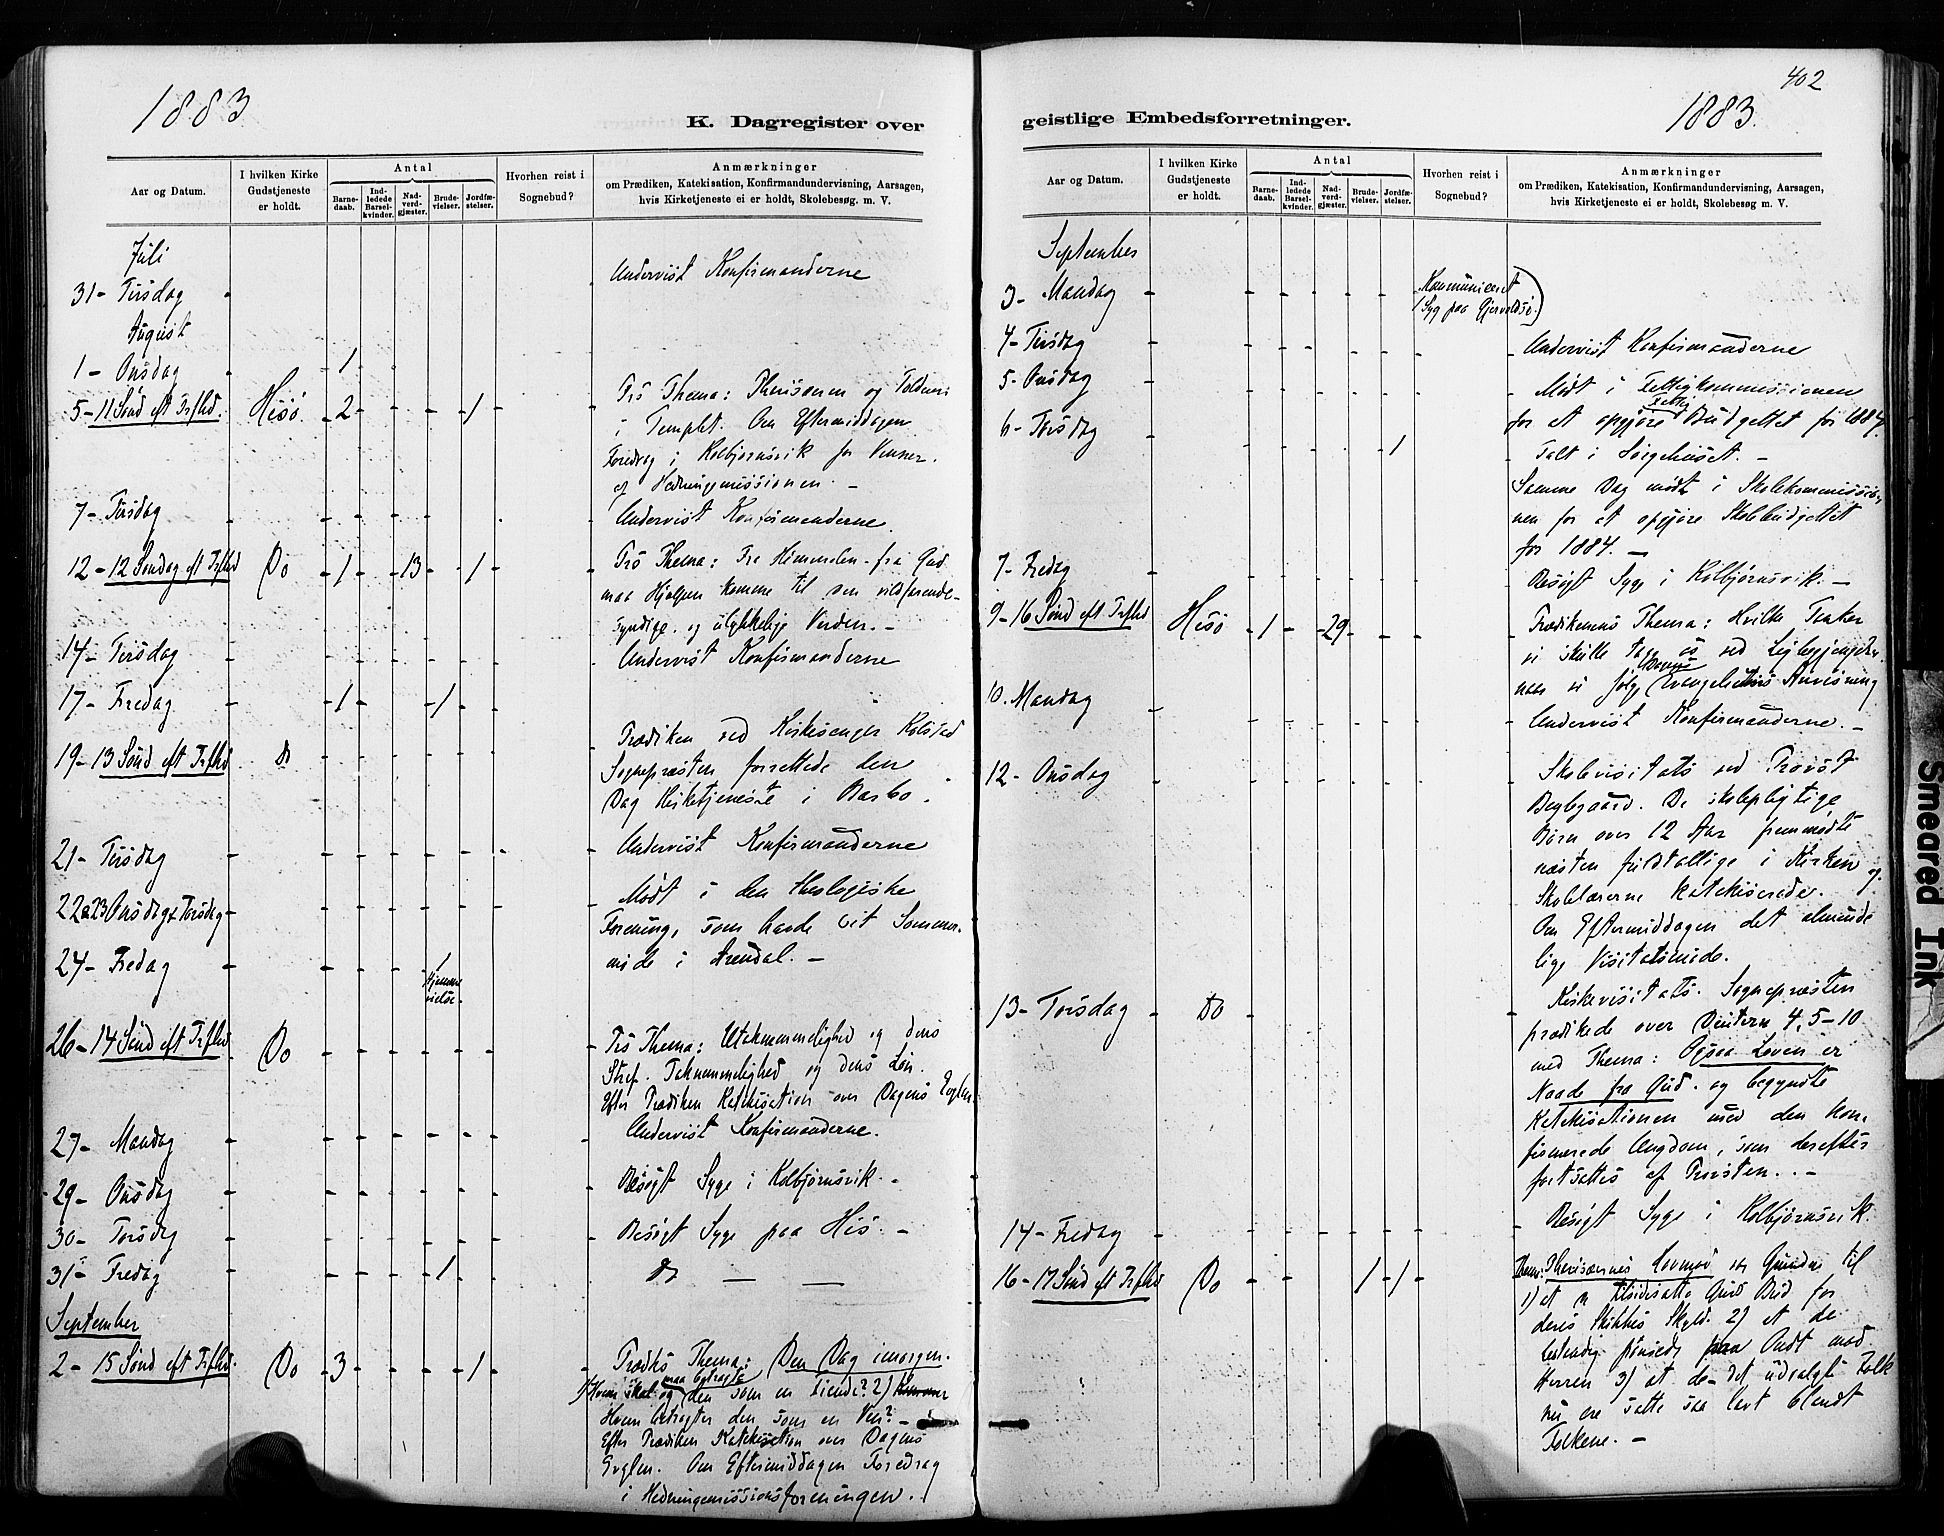 1883
K. Dagregister over
Aar og Datum.
I hvilken Kirke Gudstjeneste er holdt.
Antal
Barne-daab.
Ind-ledede Barsel-kvinder.
Nad-verd-gjæster.
Brude-vielser.
Jordfæ-stelser.
Hvorhen reist i Sognebud?
Anmærkninger
om Prædiken, Katekisation, Konfirmandundervisning, Aarsagen,
hvis Kirketjeneste ei er holdt, Skolebesøg m. V.
Juli
31- Tirsdag - Undervist Konfirmanderne
August
1- Onsdag - 1
5- 11 Sønd eft Trfhd. Hisø 2 - - - 1 Præd Thema: Pharisæeren og Tolderen
i Templet. Om Eftermiddagen
Foredrag i Kolbjørnsvik for Venner
af Hedningemissionen. -
7- Tirsdag - - - - - Undervist Konfirmanderne.
12- 12 Søndag eft Trfhd Do 1 - 13 - 1 Thema: Fra Himmelen - fra Gud
maa Hjælpen komme til den vildfarende -
syndige og ulykkelige Verden. -
14- Tirsdag - - - - - Undervist Konfirmanderne
17- Fredag - 1 - - 1 -
19- 13 Sønd eft Trfhd Do - - - - - Prædiken ved Kirkesanger Kolstad
Sognepræsten forrettede den
Dag Kirketjeneste i Barbo.
21- Tirsdag - - - - - Undervist Konfirmanderne
22 & 23 Onsdag & Torsdag - - - - - Mødt i den theologiske
Forening, som havde sit Sommer-
møde i Arendal. -
24- Fredag - - - - 1 Hjemme vielse.
26- 14 Sønd eft Trfhd Do - - - - - Thema: Utaknemmelighed og dens
Straf. Taknemmelighed og dens Løn.
Efter Prædiken Katekisation over Dagens Evglm
27- Mandag - - - - - Undervist Konfirmanderne.
29- Onsdag - - - - - Besøgt Syge i Kolbjørnsvik. -
30- Torsdag - - - - - Besøgt Syge paa His. -
31- Fredag - - - 1 - do — —
September
2- 15 Sønd eft Trfhd. Do 3 - - - 1 Thema: Den Dag imorgen.
1) Hvem skal og maa betragte den som en Fiende? 2)
Hvem betragter den som en Ven? -
Efter Prædiken Katekisation over Dagens
Evglm. Om Eftermiddagen Foredrag
i Hedningemissionsforeningen.
402
1883.
geistlige Embedsforretninger.
Aar og Datum.
I hvilken Kirke Gudstjeneste er holdt.
Antal
Barne-daab.
Ind-ledede Barsel-kvinder.
Nad-verd-gjæster.
Brude-vielser.
Jordfæ-stelser.
Hvorhen reist i Sognebud?
Anmærkninger
om Prædiken, Katekisation, Konfirmandundervisning, Aarsagen,
hvis Kirketjeneste ei er holdt, Skolebesøg m. V.
September
3- Mandag - - - - - - Kommuniceret
1 Syg paa Gjervoldsø.
4- Tirsdag - - - - - - Undervist Konfirmanderne
5- Onsdag - - - - - - Mødt i Fattigkommissionen
for at opgjøre Fattig Budgettet for 1884.
6- Torsdag - - - - 1 - Talt i Sørgehuset. -
Samme Dag mødt i Skolekommissio-
nen for at opgjøre Skolebudgettet
for 1884. -
7- Fredag - - - - - - Besøgt Syge i Kolbjørnsvik. -
9- 16 Sønd eft Trfhd Hisø 1 - 29 - - Prædikenens Thema: Hvilke Tanker
vi skulle tage os ved Ligbegjængelser
naar vi følge Dagens Evangeliums Anvisning
10. Mandag - - - - - Undervist Konfirmanderne. -
12- Onsdag - - - - - Skolevisitats ved Provst
De skolepligtige
Børn over 12 Aar fremmødte
næsten fuldtallige i Kirken og
Skolelærerne katekiserede.
Om Eftermiddagen det alminde
lige Visitatsmøde.
13- Torsdag - Do - - - - - Kirkevisitats. Sognepræsten
prædikede over Deutern 4, 5-10
med Thema: Ogsaa Loven er
Naade fra Gud. og begyndte
Katekisationen med den kon-
firmerede Ungdom, som derefter
fortsattes af Provsten. . -
14- Fredag - - - - - - Besøgt Syge i Kolbjørnsvik.
16- 17 Sønd eft Trfhd Do - - - 1 - 1 - Thema: Pharisæernes Hovmod var Grunden til
1) at de tilsidesatte Guds Bud for
deres Skikkes Skyld. 2) at de
bestandig Ondt mod
Herren 3) at de - det udvalgte Folk
nu ere satte saa lavt blandt
Folkene. -
Smeared Ink